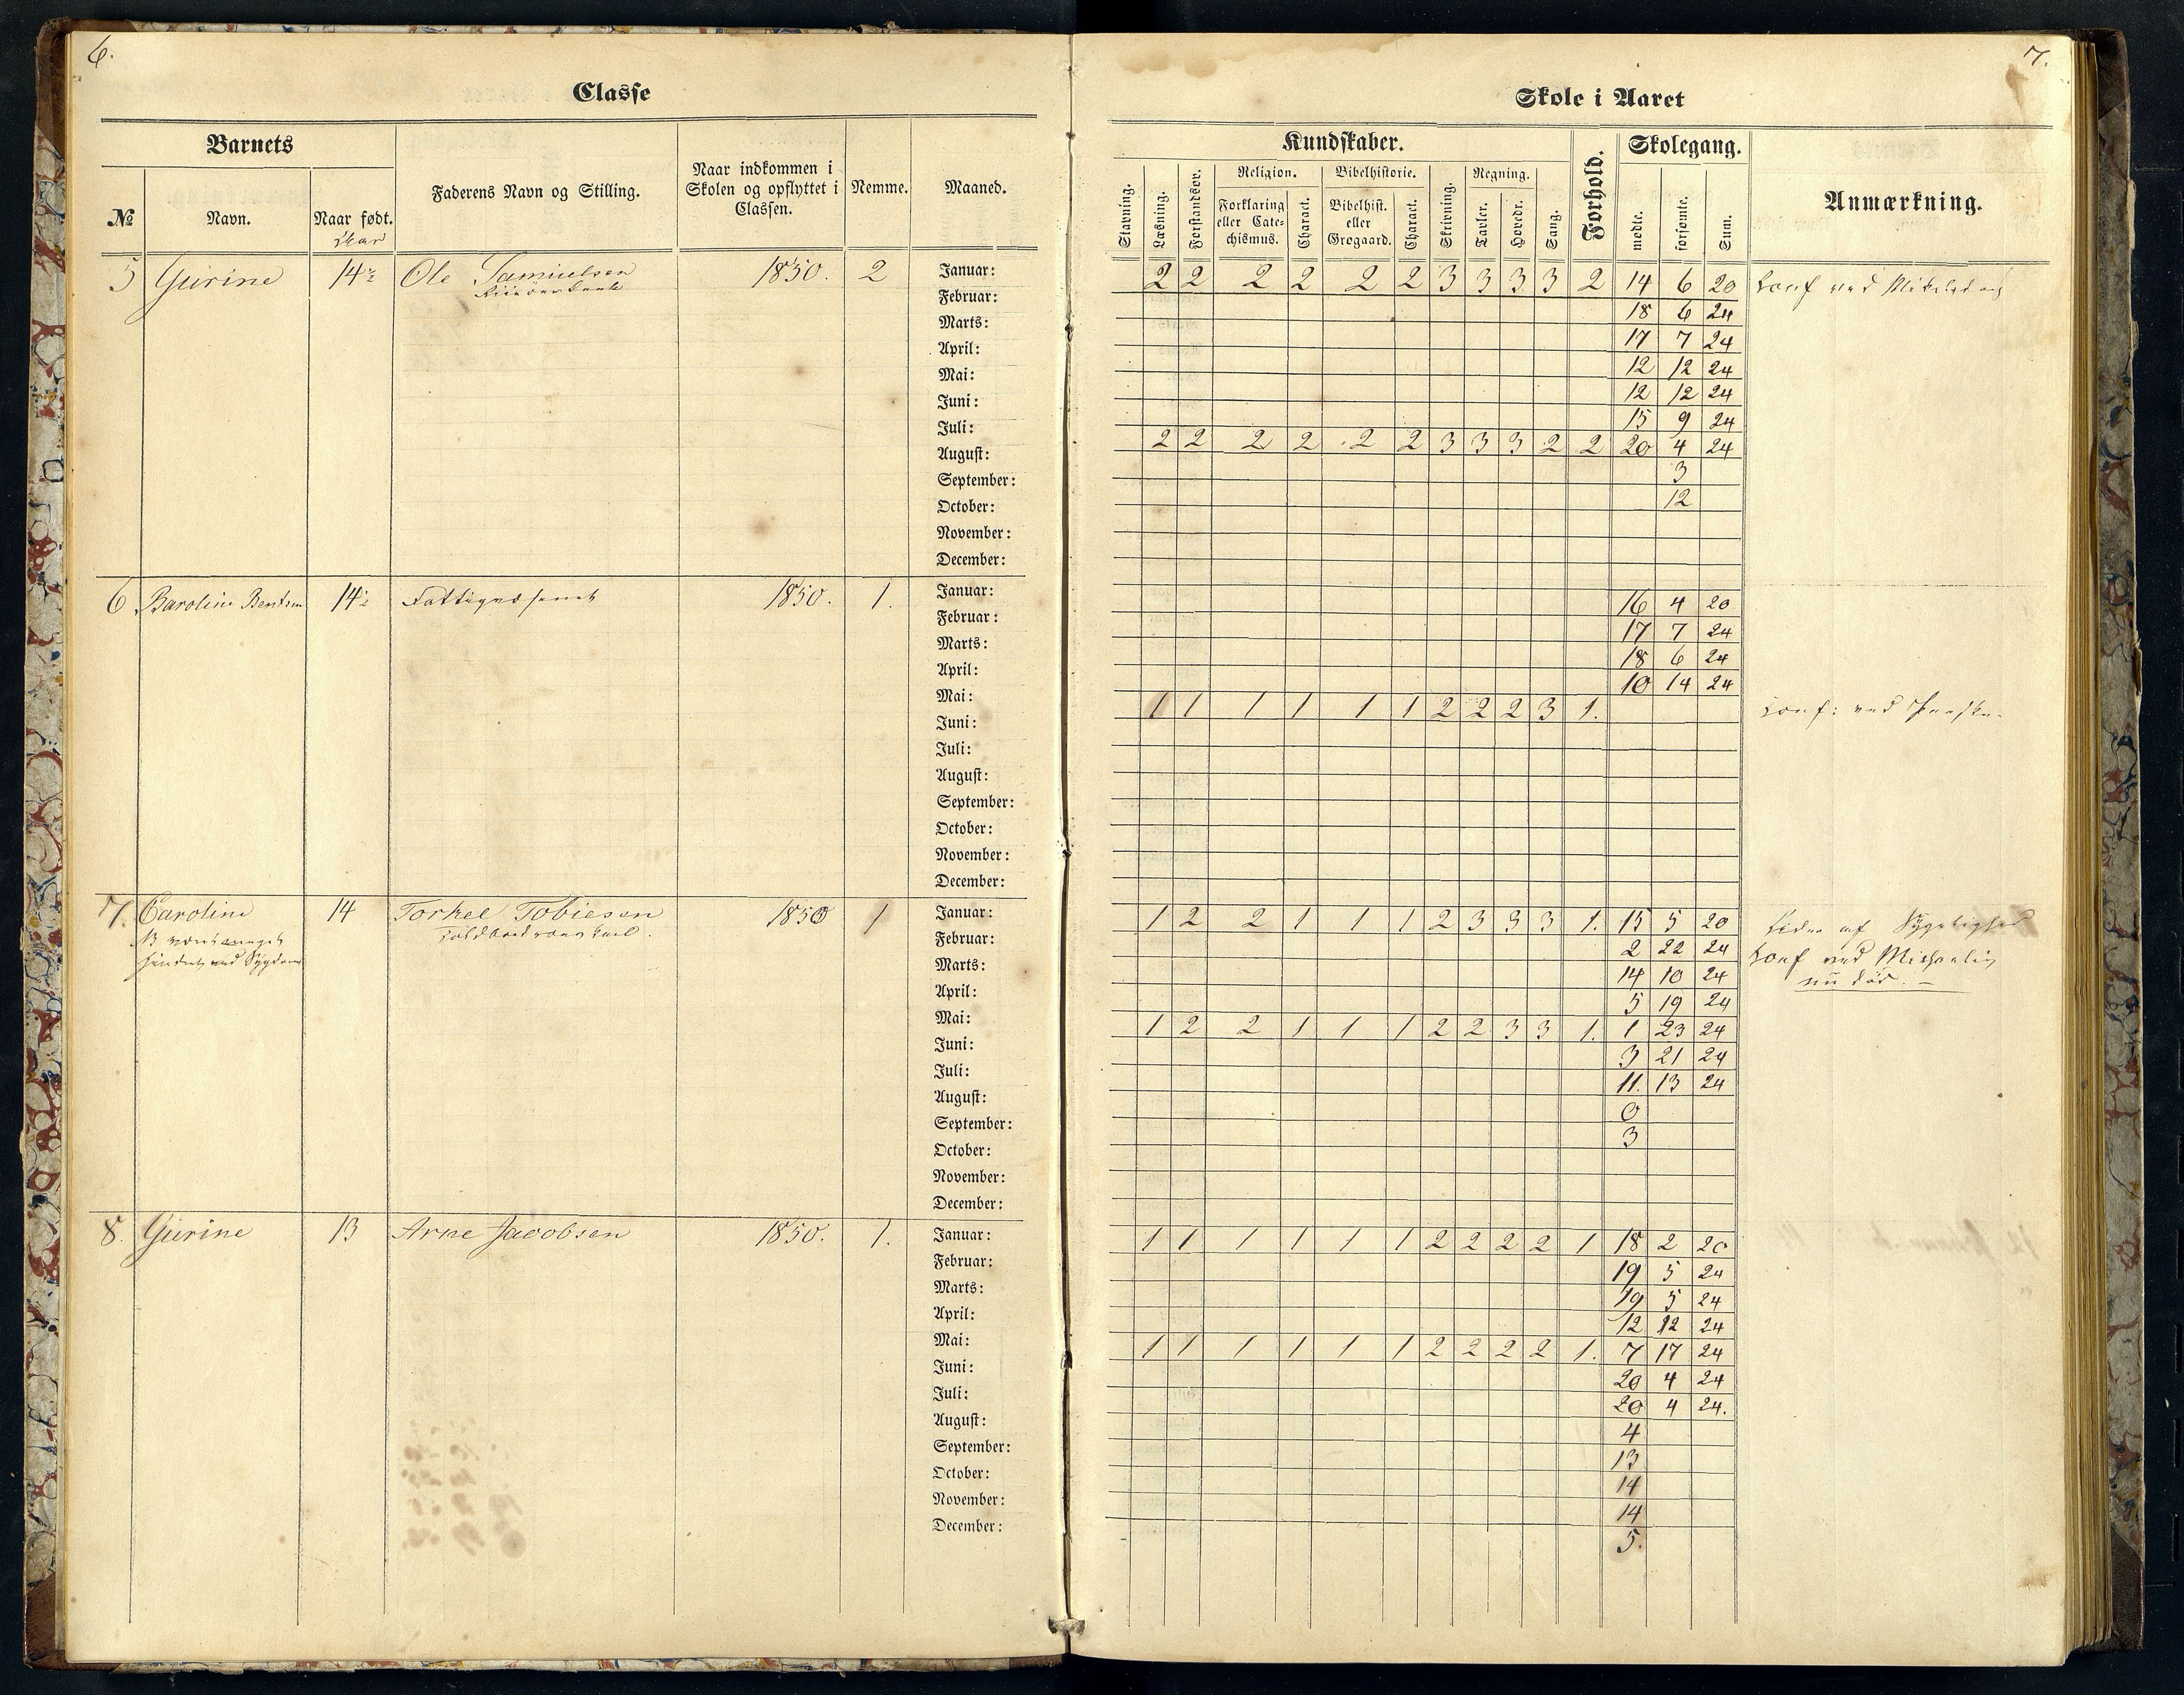 6.
Classe
Barnets
Faderens Navn og Stilling.
Naar indkommen i Skolen og opflyttet i Classen.
Nemme.
Maaned.
№
Navn.
Naar født.
5 Gurine 14½ Ole Samuelsen 1850. 2
Januar:
Februar:
Marts:
April:
Mai:
Juni:
Juli:
August:
September:
October:
November:
December:
6 Caroline Bentsen 14½ 1850. 1.
Januar:
Februar:
Marts:
April:
Mai:
Juni:
Juli:
August:
September:
October:
November:
December:
7. Caroline 14 Torkel Tobiesen 1850 1
Januar:
Februar:
Marts:
April:
Mai:
Juni:
Juli:
August:
September:
October:
November:
December:
8. Gurine 13 Arne Jacobsen 1850. 1.
Januar:
Februar:
Marts:
April:
Mai:
Juni:
Juli:
August:
September:
October:
November:
December:
7.
Skole i Aaret
Kundskaber.
Forhold.
Skolegang.
Anmærkning.
Stavning.
Læsning.
Forstandsøv.
Religion.
Forklaring eller Catechismus.
Charact.
Bibelhistorie.
Bibelhist. eller Grøgaard.
Charact.
Skrivning.
Regning.
Tavler.
Hovedr.
Sang.
mødte.
forsømte.
Sum.
2 2 2 2 2 2 3 3 3 3 2 14 6 20 Conf ved
18 6 24
17 7 24
12 12 24
12 12 24
15 9 24
2 2 2 2 2 2 3 3 3 2 2 20 4 24
3
12
16 4 20
17 7 24
18 6 24
10 14 24
1 1 1 1 1 1 2 2 2 3 1. Conf: ved
1 2 2 1 1 1 2 3 3 3 1. 15 5 20 Lider af Sygelighed
2 22 24 Conf ved Michaelis
14 10 24 nu død. –
5 19 24
1 2 2 1 1 1 2 2 3 3 1. 1 23 24
3 21 24
11. 13 24
0
3
1 1 1 1 1 1 2 2 2 2 1 18 2 20
19 5 24
19 5 24
12 12 24
1 1 1 1 1 1 2 2 2 2 1. 7 17 24
20 4 24
20 4 24.
4
13
14
14
5.